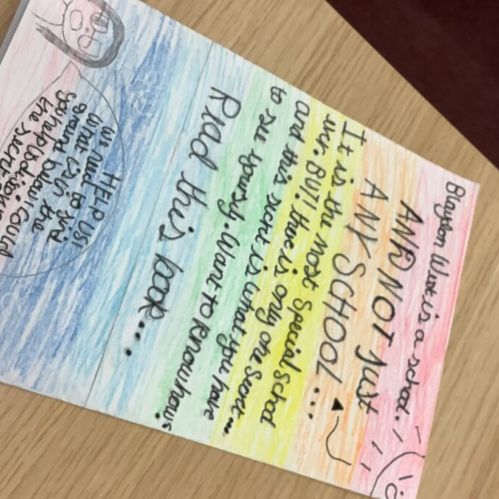 is a school!
AND NOT just
ANY SCHOOL ...
It is the most special school
ever. BUT! there is only one secret...
and this secret is what you have
to see yoursefy. Want to know how?
Read this book....
HELP US!
We need to find
what is in the
Could
you help us
the secret